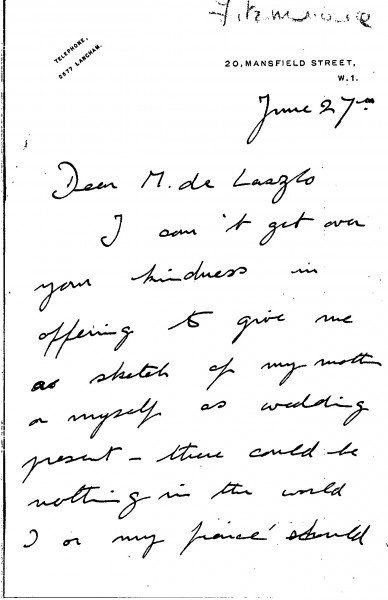 Fitzmaurice
TELEPHONE,
5577 LANGHAM.
20, MANSFIELD STREET,
W.1.
June 27th
Dear M. de Laszlo
I can't get over
your kindness in
offering to give me
a sketch of my mother
or myself as wedding
present – there could be
nothing in the world
I or my fiancé should